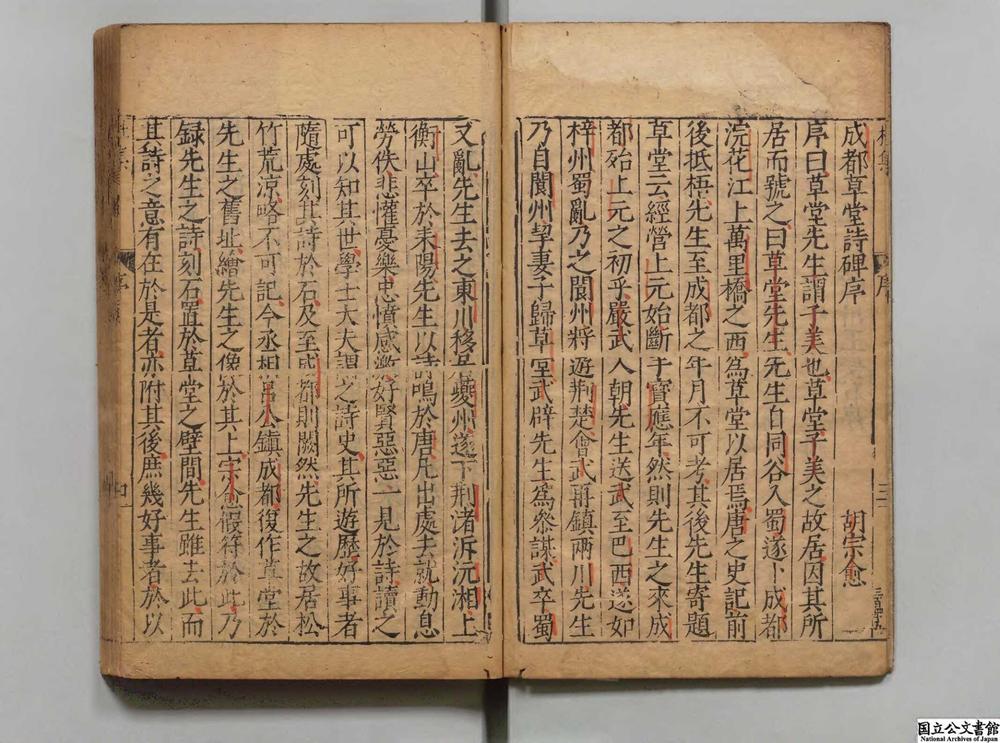 成都草堂詩碑序
胡宗愈
序曰草堂先生謂子美也草堂子美之故居因其所
居而號之曰草堂先生先生自同谷入蜀遂卜成都
浣花江上萬里橋之西為草堂以居焉唐之史記前
後抵梧先生至成都之年月不可考其後先生寄題
草堂云經營上元始斷于寶應年然則先生之來成
都殆上元之初乎嚴武入朝先生送武至巴西遂如
梓州蜀亂乃之閬州將遊荆楚會武再鎮兩川先生
乃自閬州挈妻子歸草堂武辟先生為叅謀武卒蜀
又亂先生去之東川移居夔州遂下荆渚泝沅湘上
衡山卒於耒陽先生以詩鳴於唐凡出處去就動息
勞佚悲懽憂樂忠憤感激好賢惡惡一見於詩讀之
可以知其世學士大夫謂之詩史其所遊歷好事者
隨處刻其詩於石及至成都則闕然先生之故居松
竹荒凉略不可記今丞相吕公鎮成都復作草堂於
先生之舊址繪先生之像於其上宗愈假符於此乃
録先生之詩刻石置於草堂之壁間先生雖去此而
其詩之意有在於是者亦附其後庶幾好事者於以
国立公文書館
National Archives of Japan